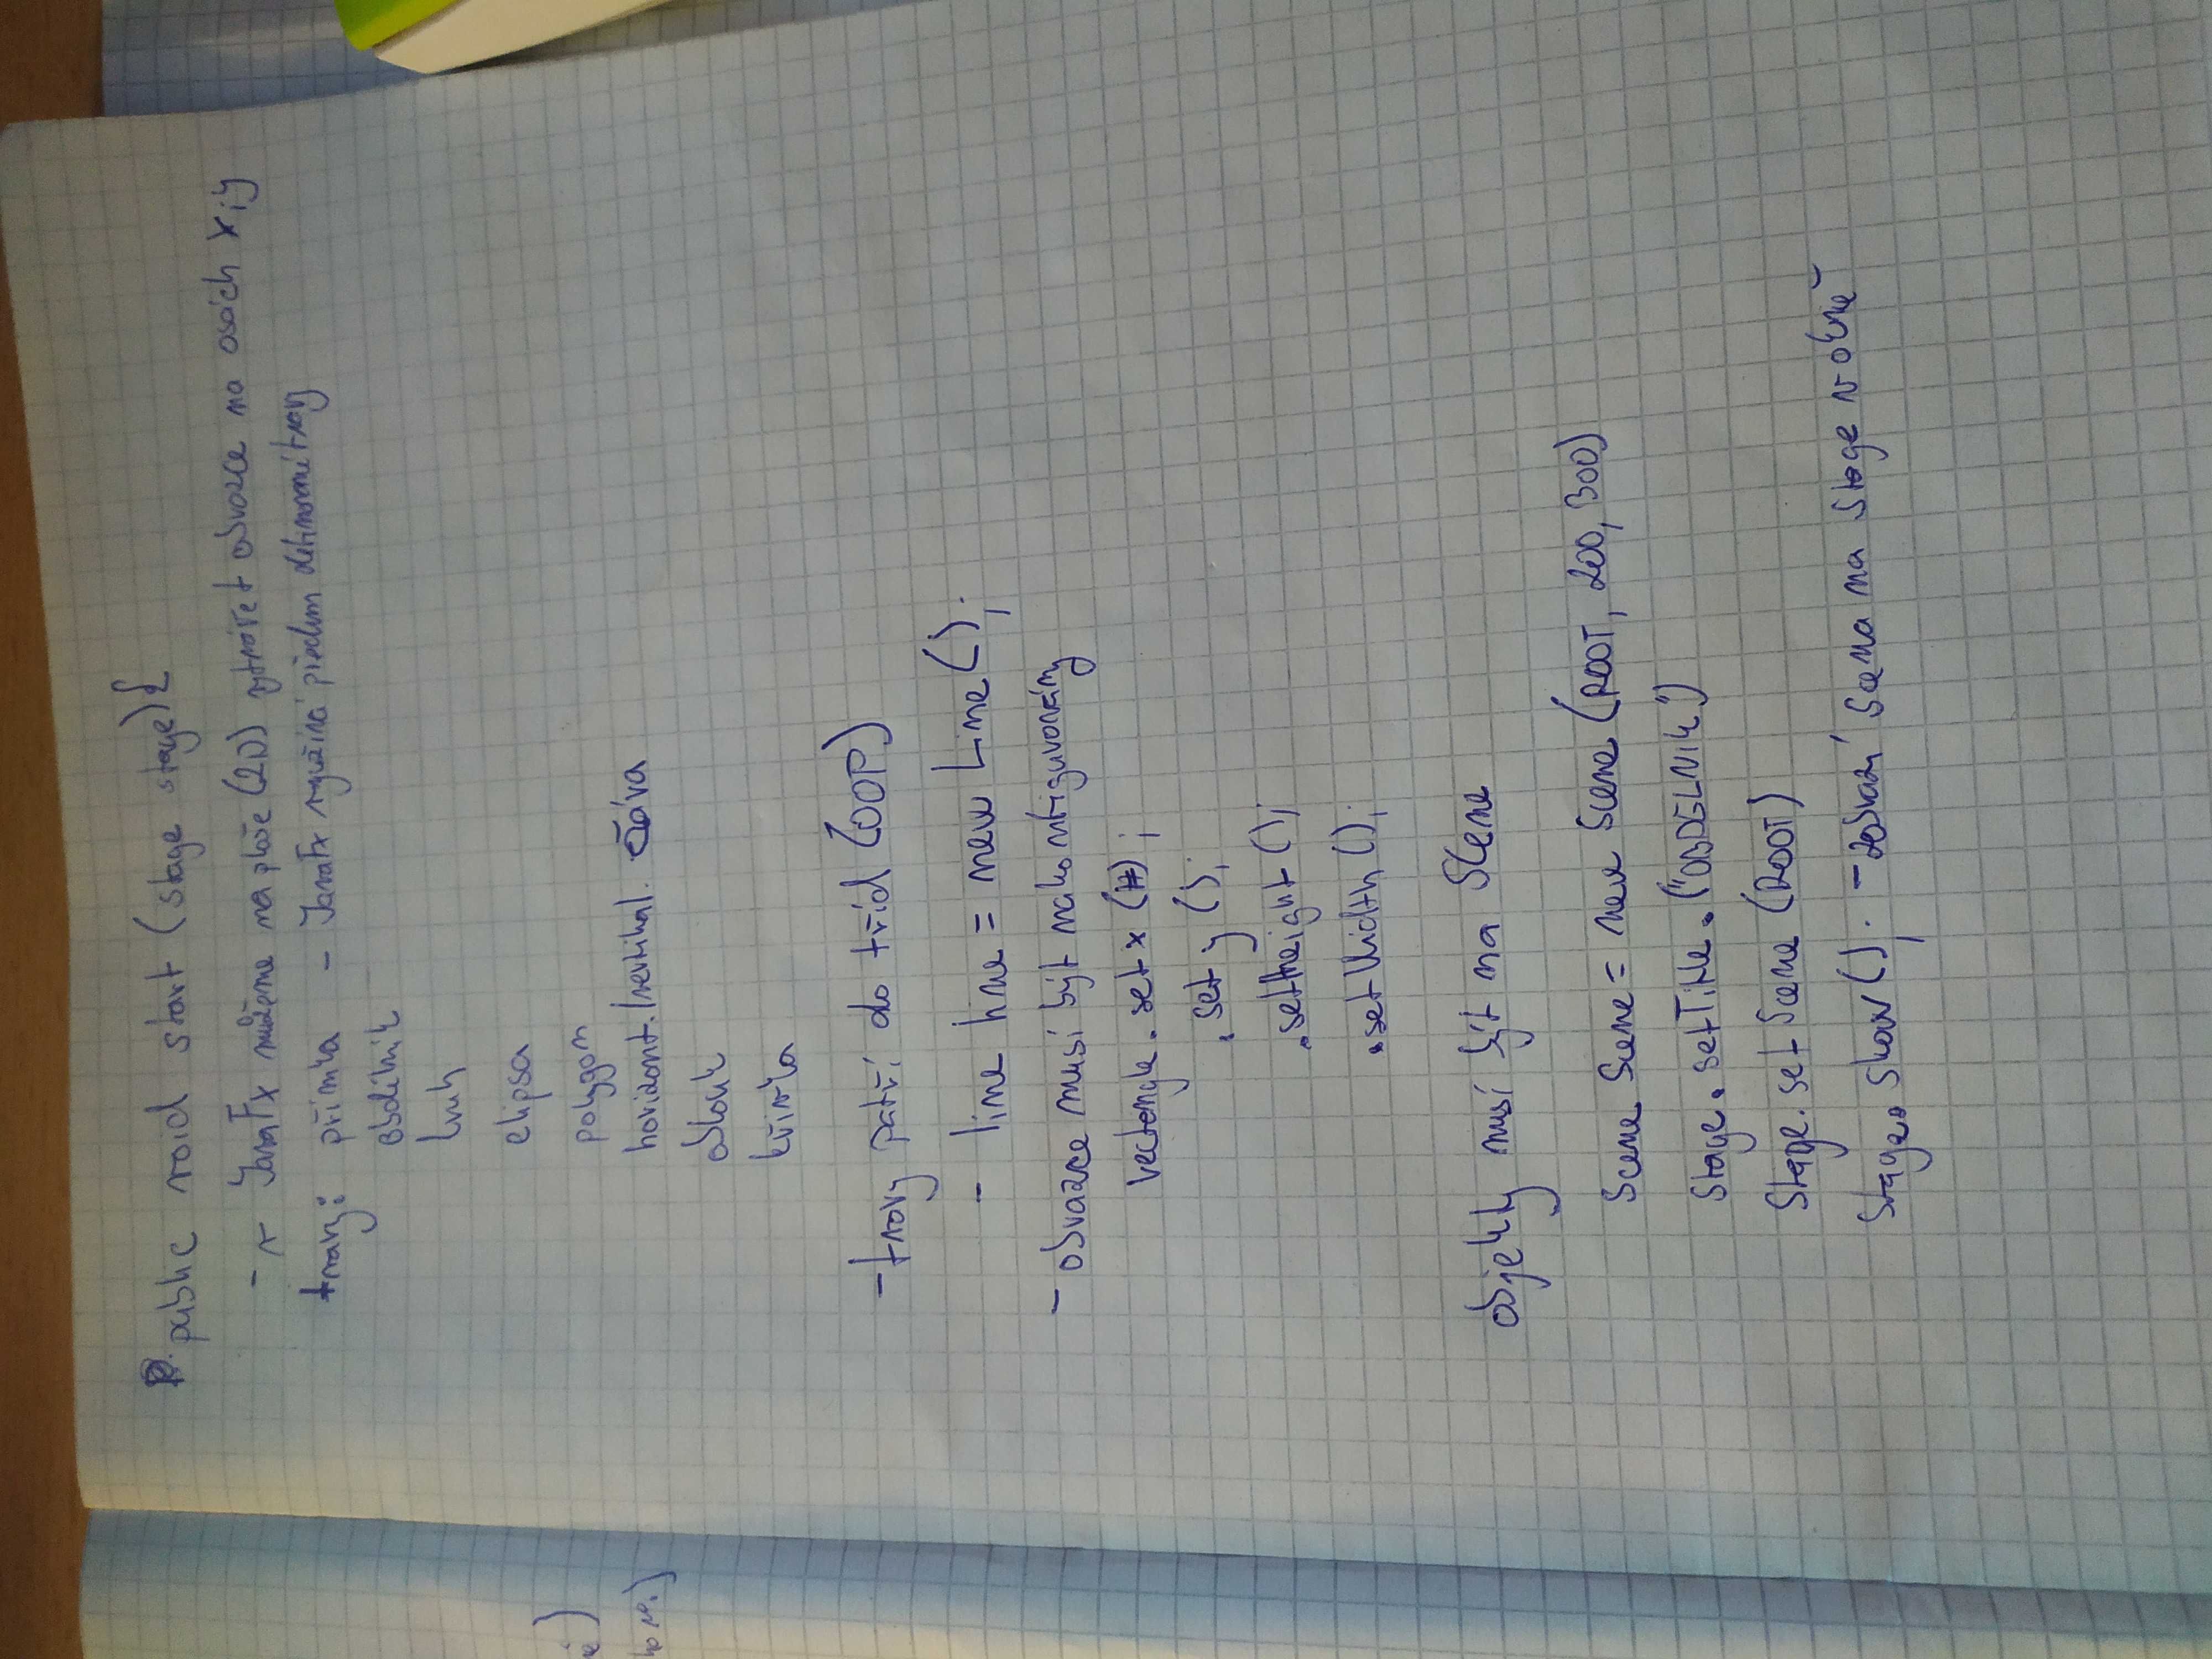 public void start (stage stage){
- v JavaFx můžeme na ploše (2D) vytvářet obrazce na osách x i y
tvary: přímka - JavaFx využívá předem definované tvary
obdélník
kruh
elipsa
polygon
horizont./vertikal. čára
oblouk
křivka
- tvary patří do tříd (OOP)
- line line = new Line();
- obrazce musí být nakonfigurovány
rectangle.set x (#);
.set y ();
.setheight ();
.setWidth ();
objekty musí být na Scene
Scene Scene = new Scene (ROOT, 200, 300)
Stage.setTitle.("OBDELNIK")
Stage.set Scene (ROOT)
Stage.show(); - zobrazí Scena na Stage v okně